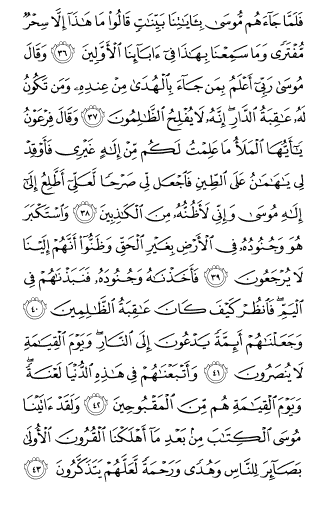 فَلَمَّا جَآءَهُم مُّوسَىٰ بِـَٔايَٰتِنَا بَيِّنَٰتٍ قَالُوا۟ مَا هَٰذَآ إِلَّا سِحْرٌ
مُّفْتَرًى وَمَا سَمِعْنَا بِهَٰذَا فِىٓ ءَابَآئِنَا ٱلْأَوَّلِينَ ٣٦ وَقَالَ
مُوسَىٰ رَبِّىٓ أَعْلَمُ بِمَن جَآءَ بِٱلْهُدَىٰ مِنْ عِندِهِۦ وَمَن تَكُونُ
لَهُۥ عَٰقِبَةُ ٱلدَّارِ ۖ إِنَّهُۥ لَا يُفْلِحُ ٱلظَّٰلِمُونَ ٣٧ وَقَالَ فِرْعَوْنُ
يَٰٓأَيُّهَا ٱلْمَلَأُ مَا عَلِمْتُ لَكُم مِّنْ إِلَٰهٍ غَيْرِى فَأَوْقِدْ
لِى يَٰهَٰمَٰنُ عَلَى ٱلطِّينِ فَٱجْعَل لِّى صَرْحًا لَّعَلِّىٓ أَطَّلِعُ إِلَىٰٓ
إِلَٰهِ مُوسَىٰ وَإِنِّى لَأَظُنُّهُۥ مِنَ ٱلْكَٰذِبِينَ ٣٨ وَٱسْتَكْبَرَ
هُوَ وَجُنُودُهُۥ فِى ٱلْأَرْضِ بِغَيْرِ ٱلْحَقِّ وَظَنُّوٓا۟ أَنَّهُمْ إِلَيْنَا
لَا يُرْجَعُونَ ٣٩ فَأَخَذْنَٰهُ وَجُنُودَهُۥ فَنَبَذْنَٰهُمْ فِى
ٱلْيَمِّ ۖ فَٱنظُرْ كَيْفَ كَانَ عَٰقِبَةُ ٱلظَّٰلِمِينَ ٤٠
وَجَعَلْنَٰهُمْ أَئِمَّةً يَدْعُونَ إِلَى ٱلنَّارِ ۖ وَيَوْمَ ٱلْقِيَٰمَةِ
لَا يُنصَرُونَ ٤١ وَأَتْبَعْنَٰهُمْ فِى هَٰذِهِ ٱلدُّنْيَا لَعْنَةً ۖ
وَيَوْمَ ٱلْقِيَٰمَةِ هُم مِّنَ ٱلْمَقْبُوحِينَ ٤٢ وَلَقَدْ ءَاتَيْنَا
مُوسَى ٱلْكِتَٰبَ مِنۢ بَعْدِ مَآ أَهْلَكْنَا ٱلْقُرُونَ ٱلْأُولَىٰ
بَصَآئِرَ لِلنَّاسِ وَهُدًى وَرَحْمَةً لَّعَلَّهُمْ يَتَذَكَّرُونَ ٤٣